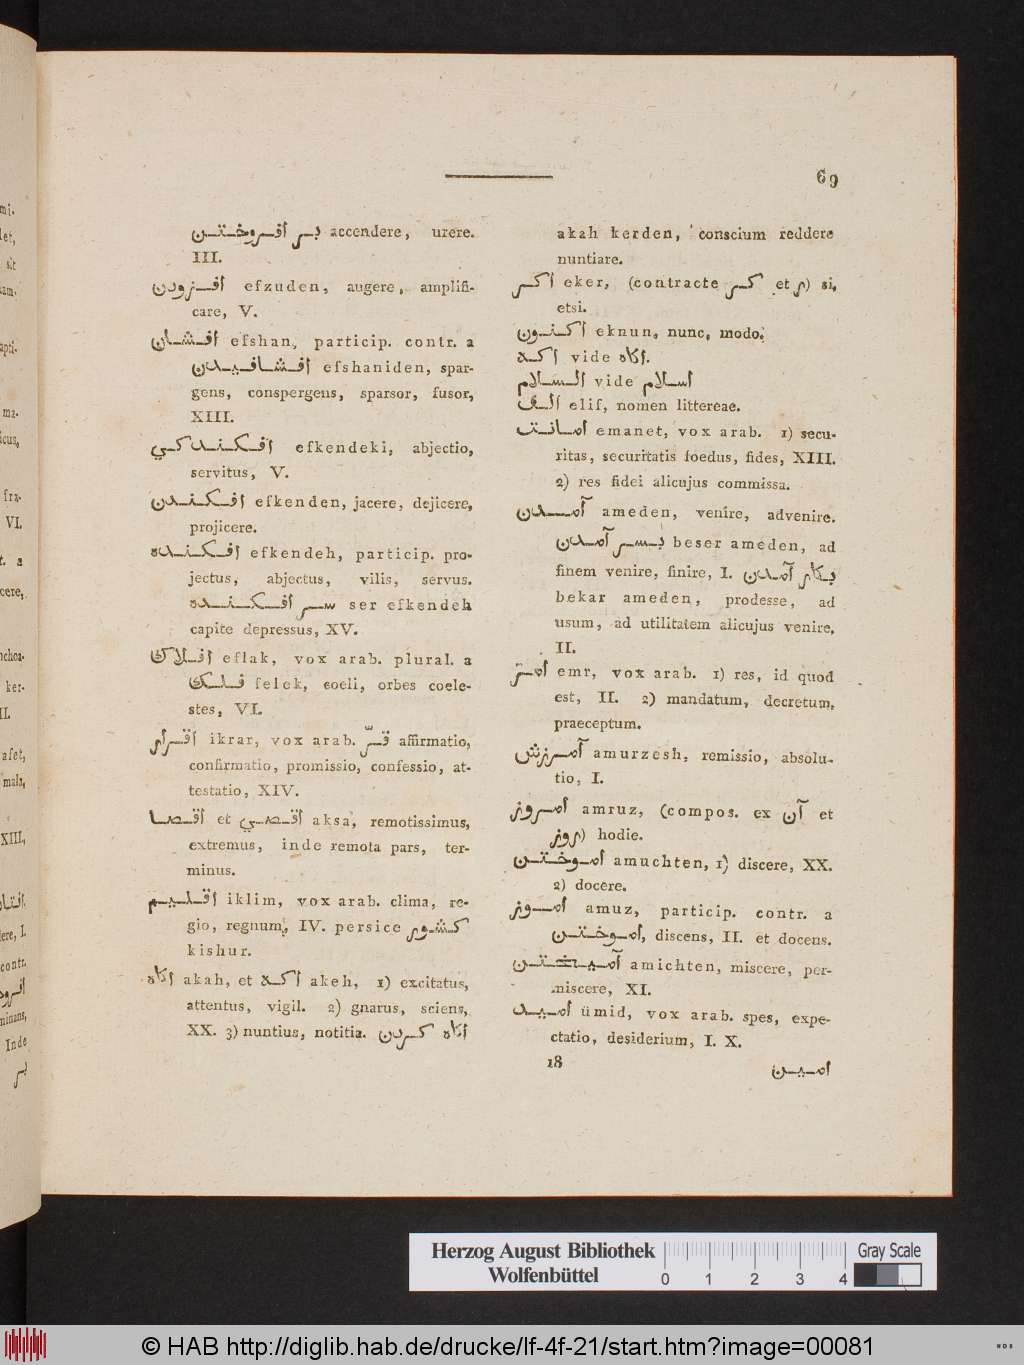 69
بر افروختن accendere, urere.
III.
افزودن efzuden, augere, amplifi-
care, V.
افشان efshan, particip. contr. a
افشانیدن efshaniden, spar-
gens, conspergens, sparsor, fusor,
XIII.
افکندکی efkendeki, abjectio,
servitus, V.
افکندن efkenden, jacere, dejicere,
projicere.
افکنده efkendeh, particip. pro-
jectus, abjectus, vilis, servus.
سر افکنده ser efkendeh
capite depressus, XV.
افلاك eflak, vox arab. plural. a
فلك felek, coeli, orbes coele-
stes, VI.
اقرار ikrar, vox arab. قرّ affirmatio,
confirmatio, promissio, confessio, at-
testatio, XIV.
اقصا et اقصي aksa, remotissimus,
extremus, inde remota pars, ter-
minus.
اقلیم iklim, vox arab. clima, re-
gio, regnum, IV. persice کشور
kishur.
اکاه akah, et اکه akeh, 1) excitatus,
attentus, vigil. 2) gnarus, sciens,
XX. 3) nuntius, notitia. اکاه کردن
akah kerden, conscium reddere
nuntiare.
اکر eker, (contracte کر et ر) si,
etsi.
اکنون eknun, nunc, modo.
اکه vide اکاه.
السلام vide اسلام
الف elif, nomen littereae.
امانت emanet, vox arab. 1) secu-
ritas, securitatis foedus, fides, XIII.
2) res fidei alicujus commissa.
آمدن ameden, venire, advenire.
بسر آمدن beser ameden, ad
finem venire, finire, I. بکار آمدن
bekar ameden, prodesse, ad
usum, ad utilitatem alicujus venire,
II.
امر emr, vox arab. 1) res, id quod
est, II. 2) mandatum, decretum,
praeceptum.
آمرزش amurzesh, remissio, absolu-
tio, I.
امروز amruz, (compos. ex آن et
روز) hodie.
اموختن amuchten, 1) discere, XX.
2) docere.
اموز amuz, particip. contr. a
اموختن, discens, II. et docens.
آمیختن amichten, miscere, per-
miscere, XI.
امید ümid, vox arab. spes, expe-
ctatio, desiderium, I. X.
18
امین
mi-
let,
sit
ma-
fra-
VI.
cere,
ker-
II.
afet,
mala,
XIII,
contr.
Inde
بر
Herzog August Bibliothek
Wolfenbüttel
0 1 2 3 4
Gray Scale
© HAB http://diglib.hab.de/drucke/lf-4f-21/start.htm?image=00081